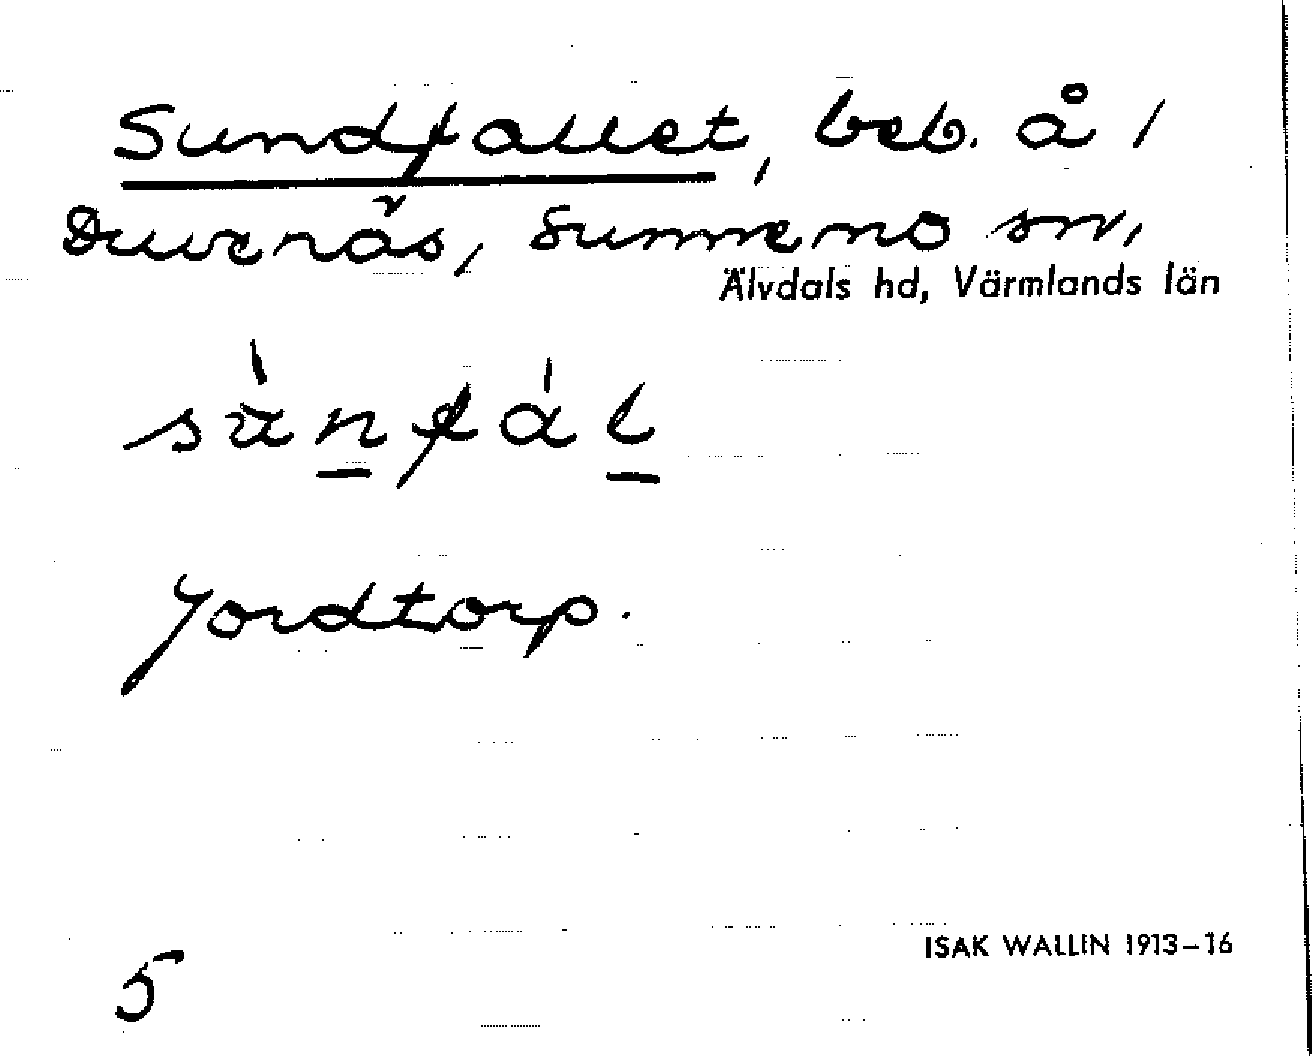 Sundfallet, beb. å /
Duvenäs, Sunnemo sn,
Älvdals hd, Värmlands län
Jordtorp.
ISAK WALLIN 1913–16
5